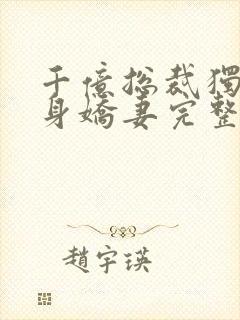 千億總裁獨
身嬌妻完整
趙宇瑛